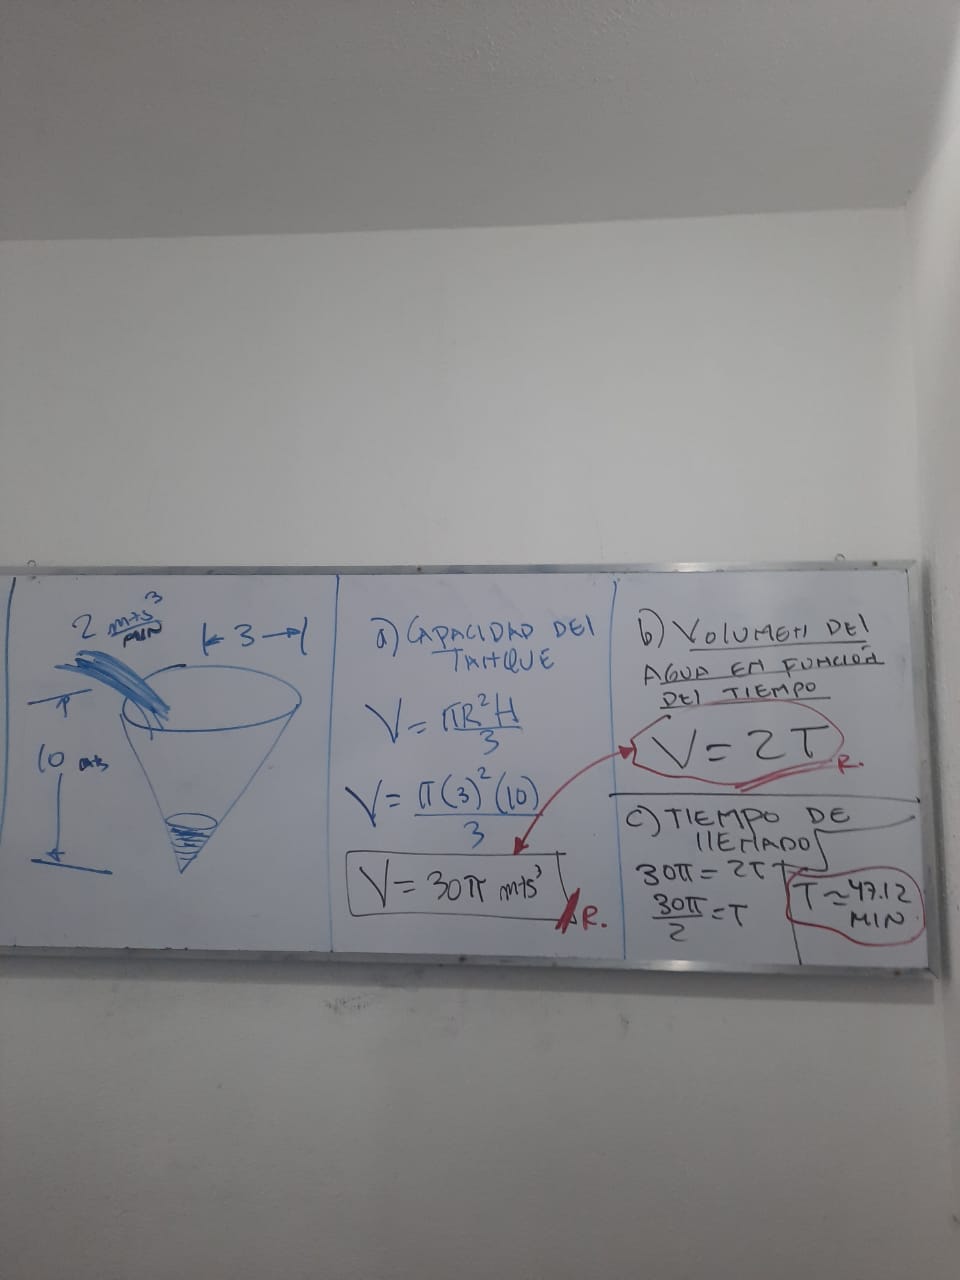 2 mts³/MIN
3
10 mts
a) CAPACIDAD DEL
TANQUE
V = πR²H/3
V = π(3)²(10)/3
V = 30π mts³
R.
b) VOLUMEN DEL
AGUA EN FUNCIÓN
DEL TIEMPO
V = 2T
R.
c) TIEMPO DE
LLENADO
30π = 2T
30π/2 = T
T ≈ 47.12
MIN